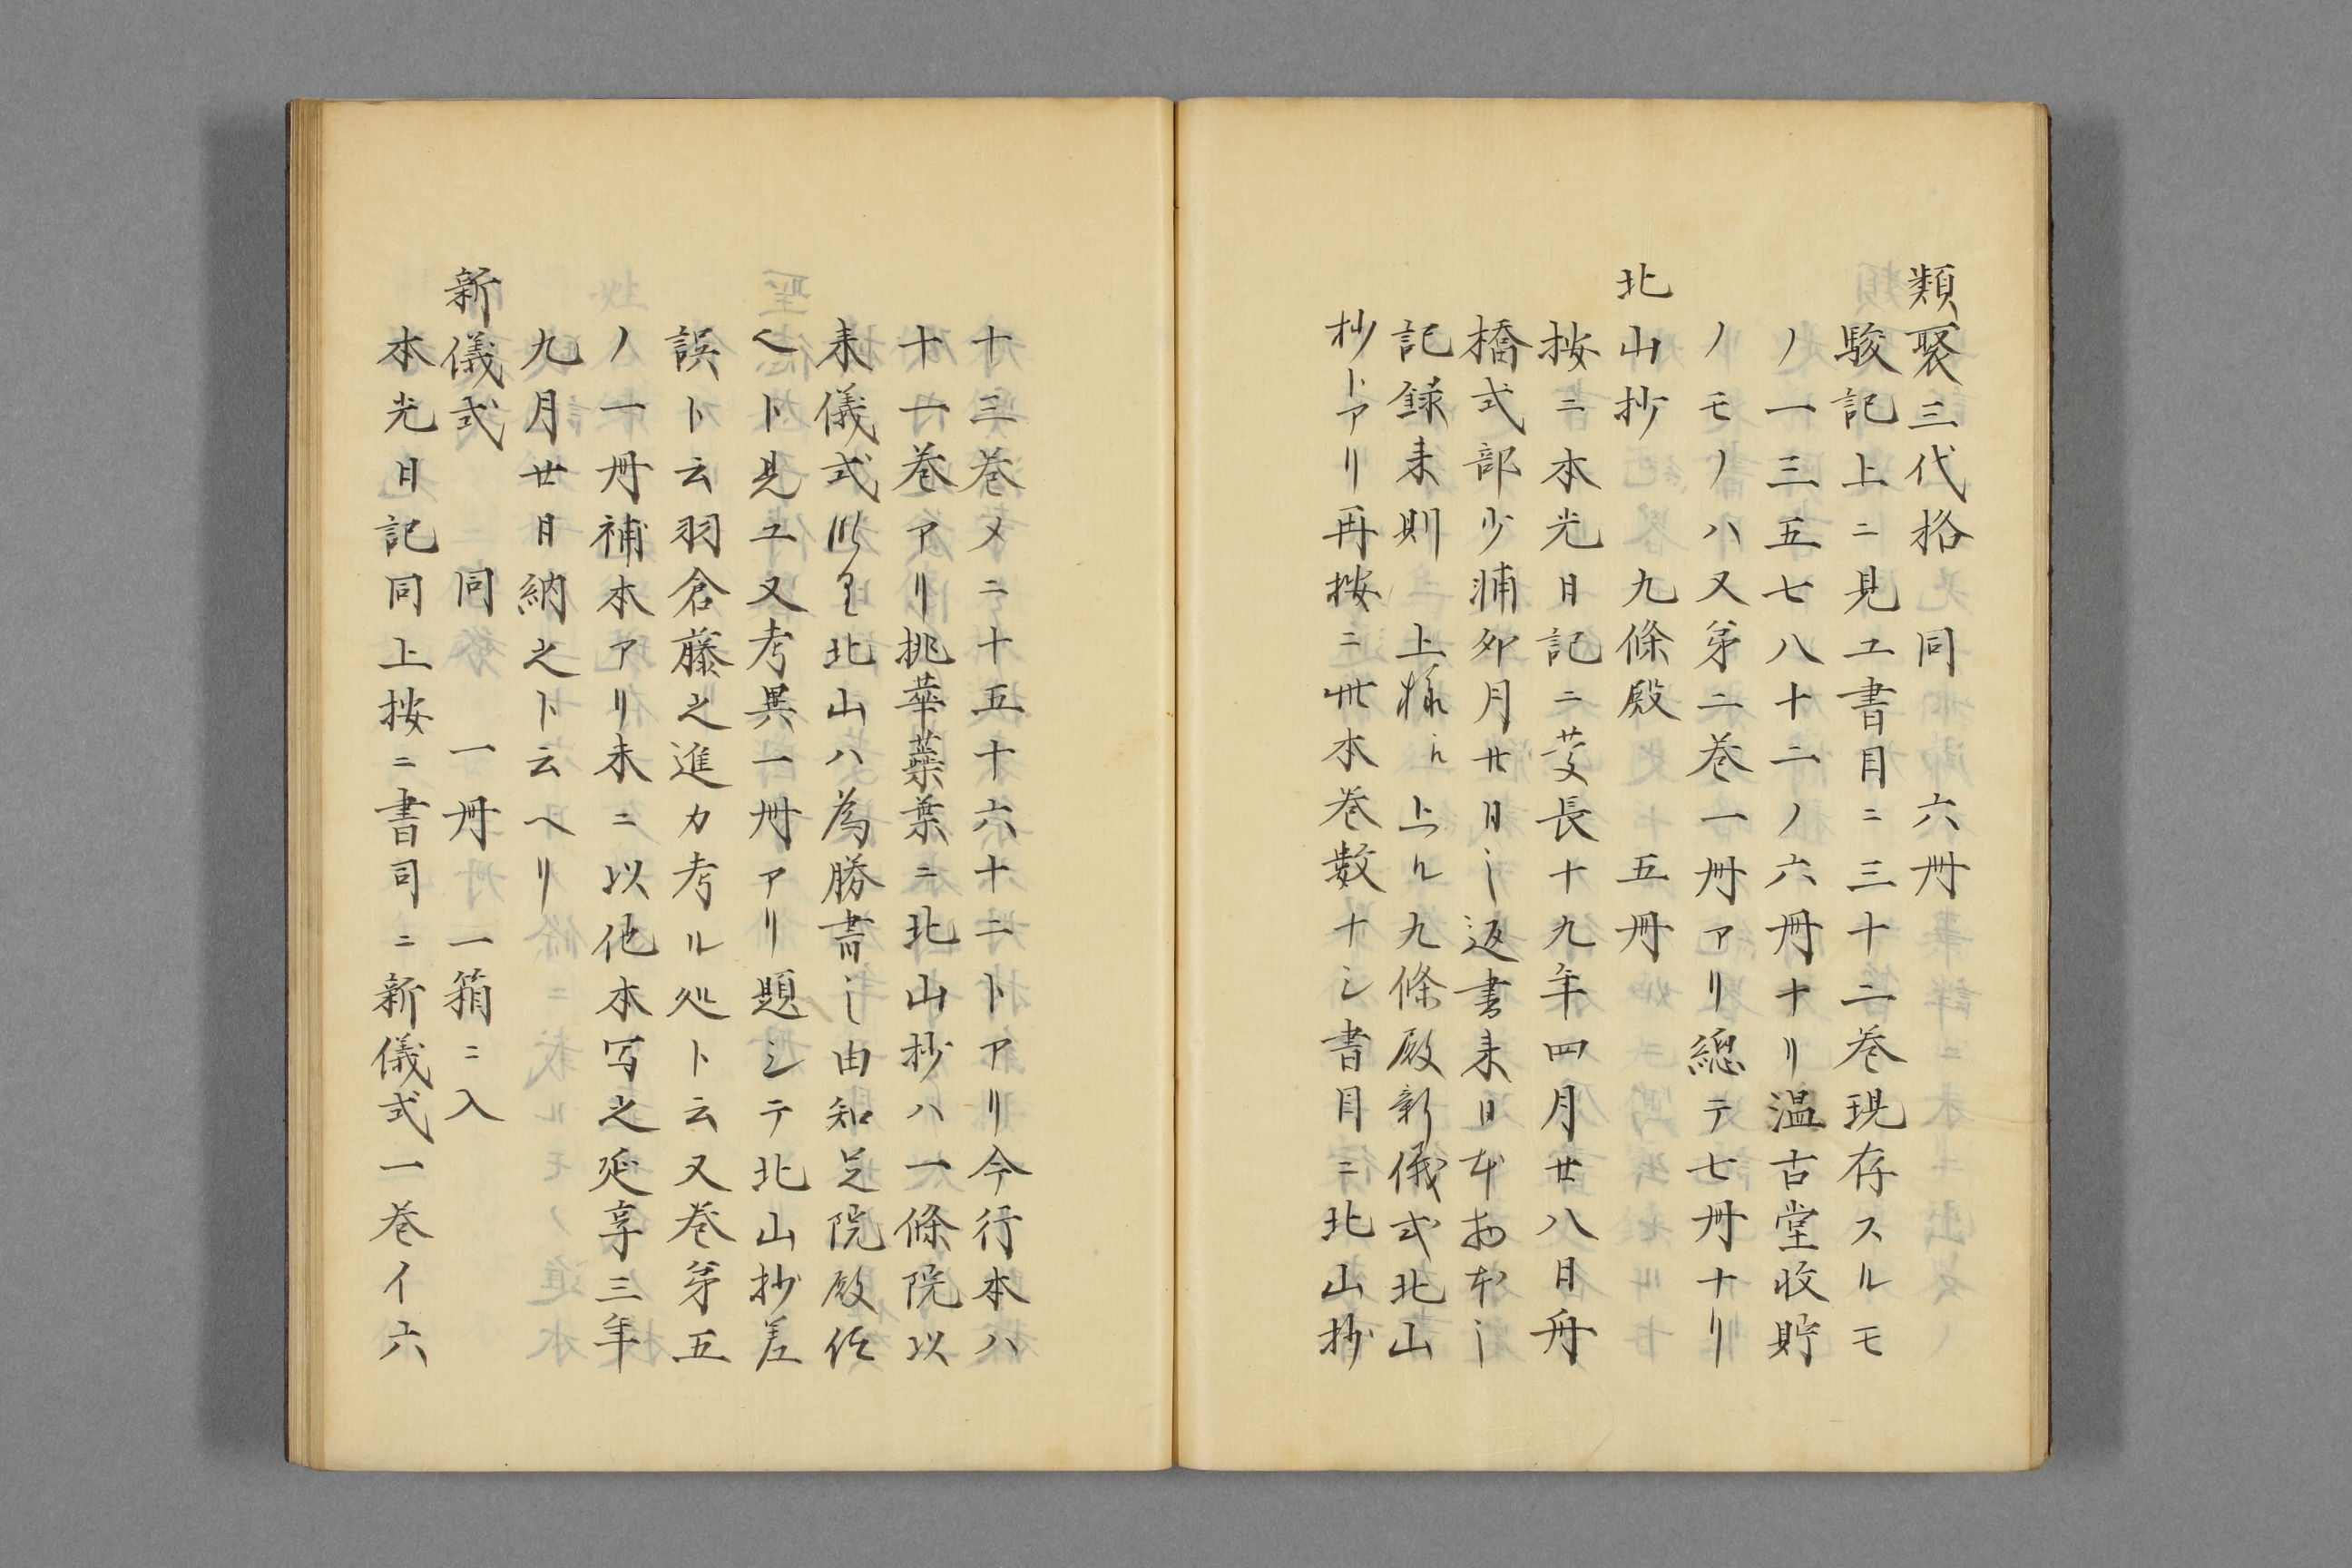 類聚三代格　同　六冊
駿記上ニ見ユ書目ニ三十二巻現存スルモ
ノ一三五七八十二ノ六冊ナリ温古堂收貯
ノモノハ又第二巻一冊アリ總テ七冊ナリ
北山抄　九條殿　五冊
按ニ本光日記ニ慶長十九年四月廿八日舟
橋式部少輔卯月廿日之返書来日本
記録来則　上様ニ上ル九條殿新儀式北山
抄トアリ再按ニ此本巻数ナシ書目ニ北山抄
十三巻メニ十五十六十二トアリ今行本ハ
十一巻アリ桃華蘂葉ニ北山抄ハ一條院以
来儀式北山ハ為勝書之由知足院殿仰
ヘト見ユ又考異一冊アリ題シテ北山抄差
誤ト云羽倉藤之進カ考ル処ト云又巻第五
ノ一冊補本アリ末ニ以他本写之延享三年
九月廿日納之ト云ヘリ
新儀式　同　一冊　一箱ニ入
本光日記同上按ニ書司ニ新儀式一巻イ六